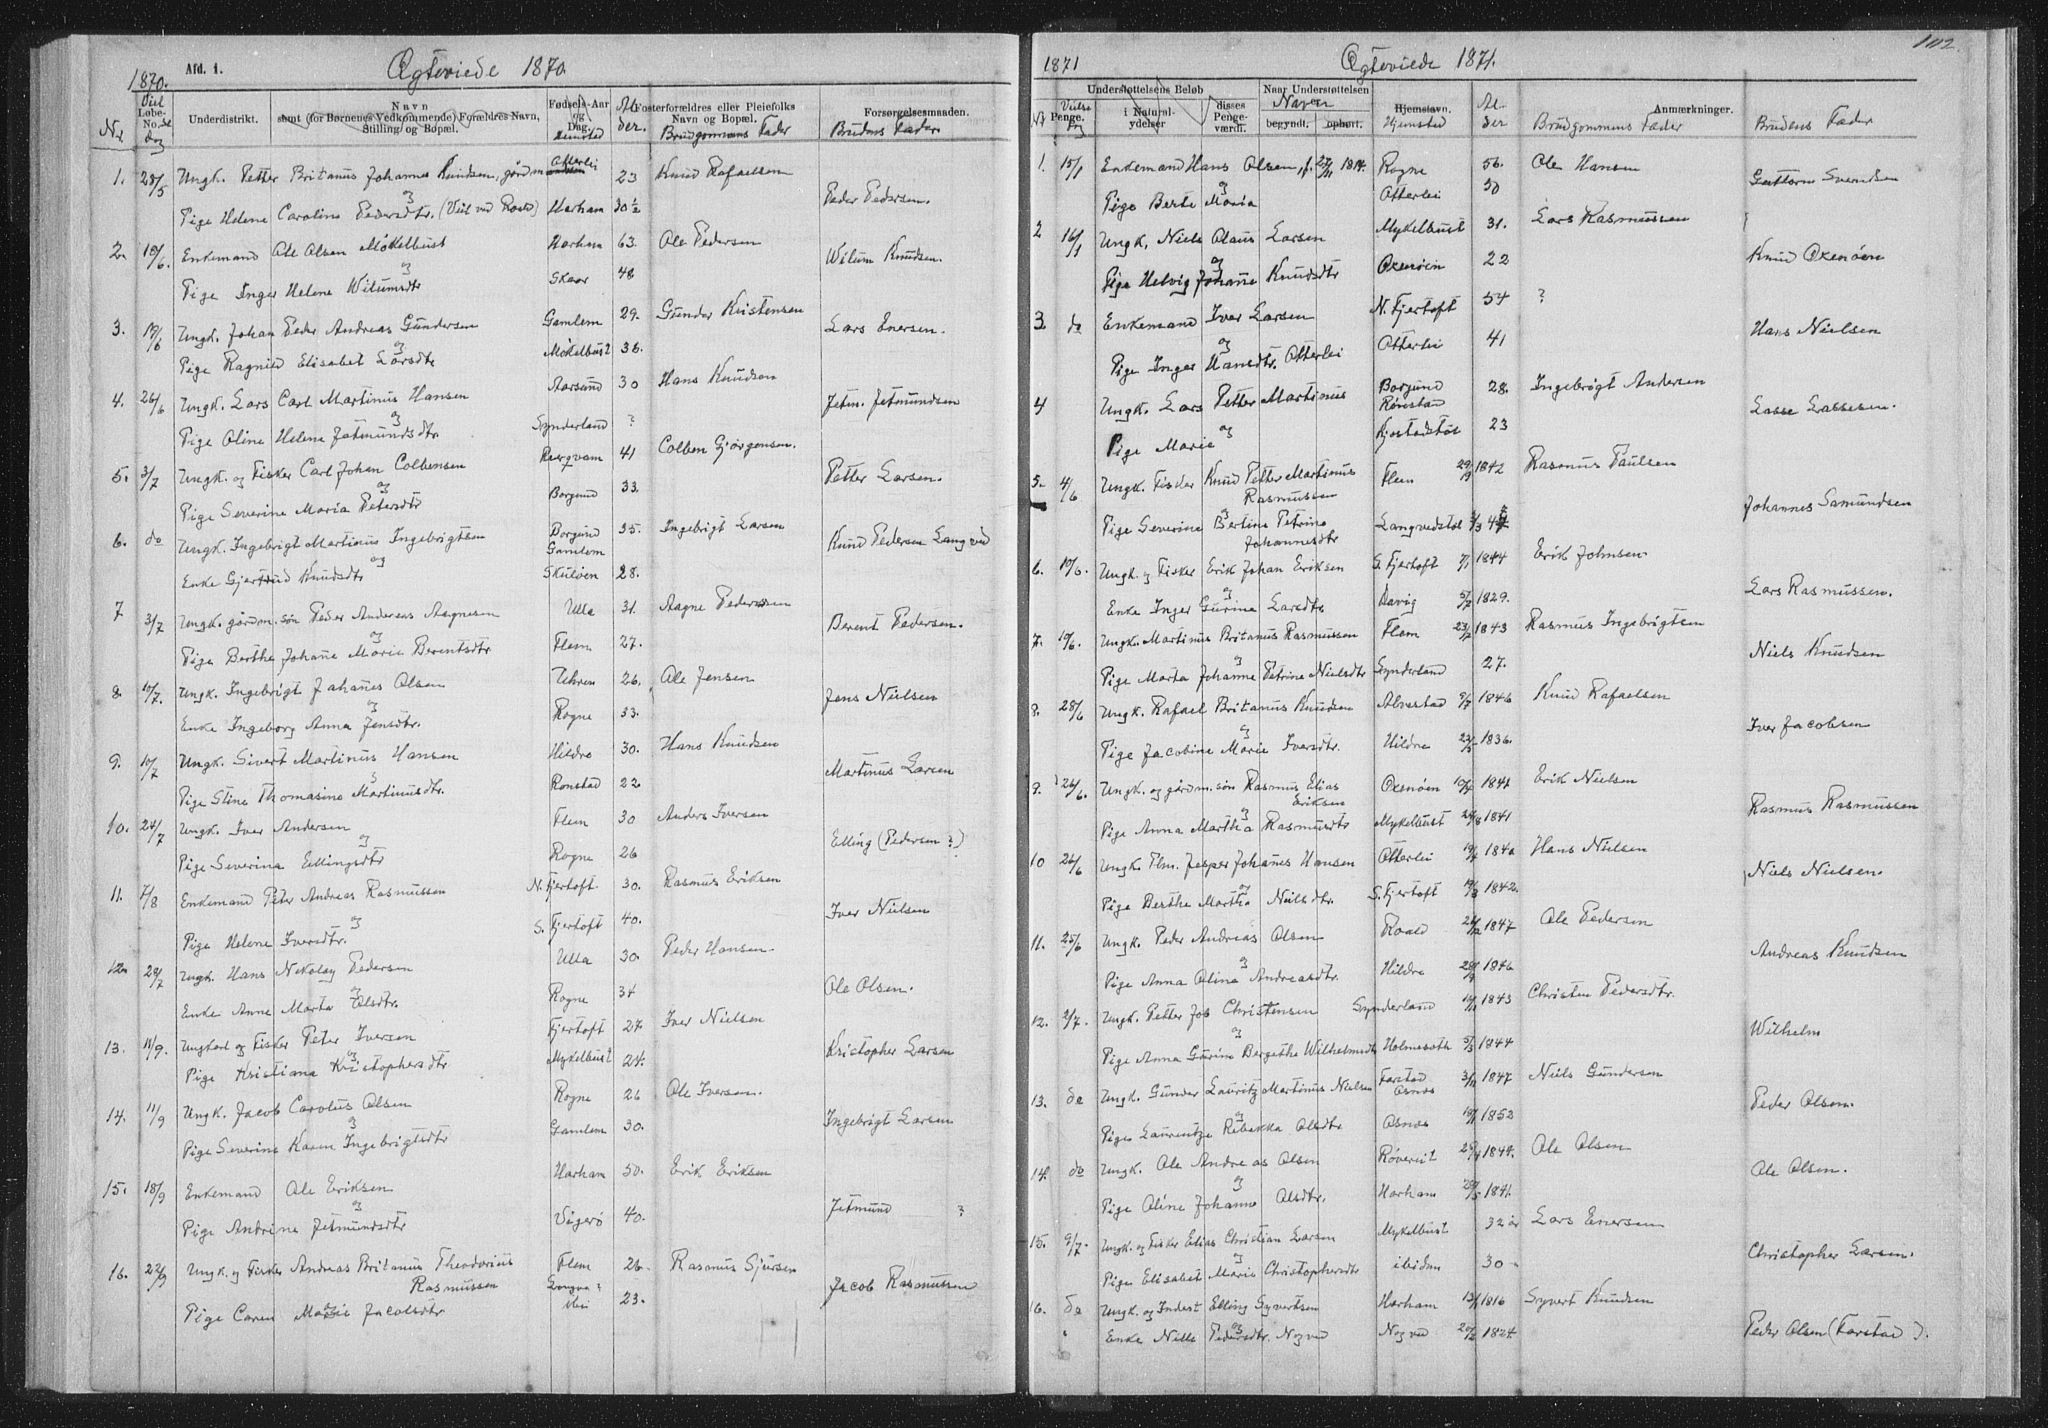 Afd. 1.
Ægteviede 1870
1870.
Løbe-
No.
Underdistrikt.
Navn
samt (for Børnenes Vedkommende) Forældres Navn,
Stilling og Bopæl.
Fødsels-Aar
og
Dag.
Al
der.
Fosterforældres eller Pleiefolks
Navn og Bopæl.
Brudgommens Fader
Forsørgelsesmaaden.
Brudens Fader
Nr.
1. 28/5 Ungk. Petter Britanus Johannes Knudsen, gårdm Otterlei 23 Knud Rafaelsen
og
Pige Helene Caroline Pedersdtr. Harham 30½ Peder Pedersen.
2. 18/6. Enkemand Ole Olsen Møkelbust Harham 63. Ole Pedersen
og
Pige Inger Helene Wilumsdtr Skaar 48 Wilum Knudsen.
3. 19/6 Ungk. Johan Peder Andreas Gundersen Gamlem 29. Gunder Kristensen
og
Pige Ragnild Elisabet Larsdtr Møkelbust 36. Lars Enersen.
4. 26/6 Ungk. Lars Carl Martinus Hansen Aarsund 30 Hans Knudsen
og
Pige Oline Helene Jetmundsdtr Synderland ? Jetm. Jetmundsen
5. 3/7 Ungk. og Fisker Carl Johan Colbensen 41 Colben Gjørgensen.
og
Pige Severine Maria Petersdtr Borgund 33. Petter Larsen.
6. do Ungk. Ingebrigt Martinus Ingebrigtsen Borgund 35. Ingebrigt Larsen
Gamlem
og
Enke Gjertrud Knudsdtr Skuløen 28. Knud Pedersen Langved
7 3/7 Ungk. gårdm. søn Peder Andersas Aagnesen Ulla 31. Aagne Pedersen
og
Pige Berthe Johane Marie Berentsdtr Flem 27. Berent Pedersen.
8. 10/7. Ungk. Ingebrigt Johanes Olsen Uhren 26. Ole Jensen
og
Enke Ingeborg Anna Jensdtr. Rogne 33. Jens Nielsen
9. 10/7 Ungk. Sivert Martinus Hansen Hildre 30. Hans Knudsen
og
Pige Stine Thomasine Martinusdtr. Ronstad 22 Martinus Larsen
10. 24/7 Ungk. Iver Andersen Flem 30 Anders Iversen
og
Pige Severina Ellingsdtr Rogne 26 Elling (Pedersen ?)
11. 7/8 Enkemand Peter Andreas Rasmussen N. Fjertoft. 30. Rasmus Eriksen
og
Pige Helene Iversdtr. S. Fjertoft 40. Iver Nielsen
12. 29/7 Ungk. Hans Nikolay Pedersen Ulla 30. Peder Hansen.
og
Enke Anne Marta Olsdtr. Rogne 34 Ole Olsen.
13. 11/9. Ungkarl og Fisker Peter Iversen Fjertoft 27. Iver Nielsen
og
Pige Kristiana Kristophersdtr Mykelbust 24. Kristopher Larsen
14. 11/9 Ungk. Jacob Carolus Olsen Rogne 26 Ole Iversen.
og
Pige Severine Karen Ingebrigtsdtr Gamlem 30. Ingebrigt Larsen
15. 18/9 Enkemand Ole Eriksen Harham 50. Erik Eriksen
og
Pige Andrine Jetmundsdtr Vigerø 40. Jetmund ?
16. 22/9 Ungk. og Fisker Andreas Britanus Theodorius Flem 26. Rasmus Sjursen
Rasmussen
og
Pige Caren Marie Jacobsdtr 23. Jacob Rasmussen
102.
1871
Ægteviede 1871.
Understøttelsens Beløb
Naar Understøttelsen
Vielse
Dag
Penge.
i Natural-
ydelser
disses
Penge-
værdi.
Navn
begyndt.
ophørt.
Hjemstavn.
Hjemsted
Al-
der
Anmærkninger.
Brudgommens Fader
Brudens Fader
1. 15/1 Enkemand Hans Olsen, f. 27/11 1814. Rogne 56. Ole Hansen
og
Pige Berte Maria Otterlei 30 Guttorm Svendsen
2 16/1 Ungk. Niels Olaus Larsen Mykelbust 31. Lars Rasmussen
og
Pige Helvig Johane Knudsdtr Oxenøen 22 Knud Oxenøen
3. do Enkemand Iver Larsen N. Fjertoft 54 ?
og
Pige Inger Hansdtr. Otterlei Otterlei 41 Hans Nielsen
4 Ungk. Lars Petter Martinus Borgund 28. Ingebrigt Andersen
Rønstad
og
Pige Marie Kjostadstøl 23 Lasse Lassesen.
5. 4/6 Ungk. Fisker Knud Petter Martinus Flem 29/9 1842 Rasmus Paulsen
Rasmussen
og
Pige Severine Bertine Petrine Langvedstøl Johannes Samundsen
Johannesdtr
6. 10/6. Ungk. og Fisker Erik Johan Eriksen S. Fjertoft 7/1 1844 Erik Johnsen.
og
Enke Inger Gurine Larsdtr. Davig 1829. Lars Rasmussen.
7. 10/6. Ungk. Martinus Britanus Rasmussen Flem 23/2 1843 Rasmus Ingebrigtsen
og
Pige Marta Johanne Petrine Nielsdtr Synderland 27. Niels Knudsen
8. 28/6 Ungk. Rafael Britanus Knudsen Alvestad 1846 Knud Rafaelsen
og
Pige Jacobine Marie Iversdtr. Hildre 1836. Iver Jacobsen
9. 26/6. Ungk. og gårdm. søn Rasmus Elias Oxenøen 1841 Erik Nielsen
Eriksen
og
Pige Anna Martha Rasmusdtr Mykelbust 24/8 1841 Rasmus Rasmussen
10 26/6 Ungk. Flm. Jesper Johanes Hansen Otterlei 1840 Hans Nielsen
og
Pige Berthe Martha Neilsdtr S. Fjertoft 19/3 1842. Niels Nielsen.
11. 25/6 Ungk. Peder Andreas Olsen Roald 1847 Ole Pedersen
og
Pige Anna Oline Andreasdtr. Hildre 1846 Andreas Knudsen
12. 2/7. Ungk. Petter Job Christensen Synderland 1843 Christen Pedersdtr.
og
Pige Anna Gurine Bergethe Wilhelmsdtr Holmeseth 5/3 1844 Wilhelm
13. do Ungk. Gunder Lauritz Martinus Nielsen Farstad 3/11 1847 Niels Gundersen
Osnes
og
Pige Laurentze Rebekka Olsdtr Osnes 1853 Peder Olsen.
14. do Ungk. Ole Andreas Olsen Røvereit 1849. Ole Olsen
og
Pige Oline Johanne Olsdtr. Harham 1841. Ole Olsen.
15. 9/7. Ungk. og Fisker Elias Christian Larsen Mykelbust 32 år Lars Enersen
og
Pige Elisabet Marie Christophersdtr ibidem 30 Christopher Larsen.
16. do Ungk. og Inderst Elling Syvertsen Harham 13/1 1816 Syvert Knudsen
og
Enke Nille Pedersdtr. Nogved Nogved 1824 Peder Olsen (Farstad).